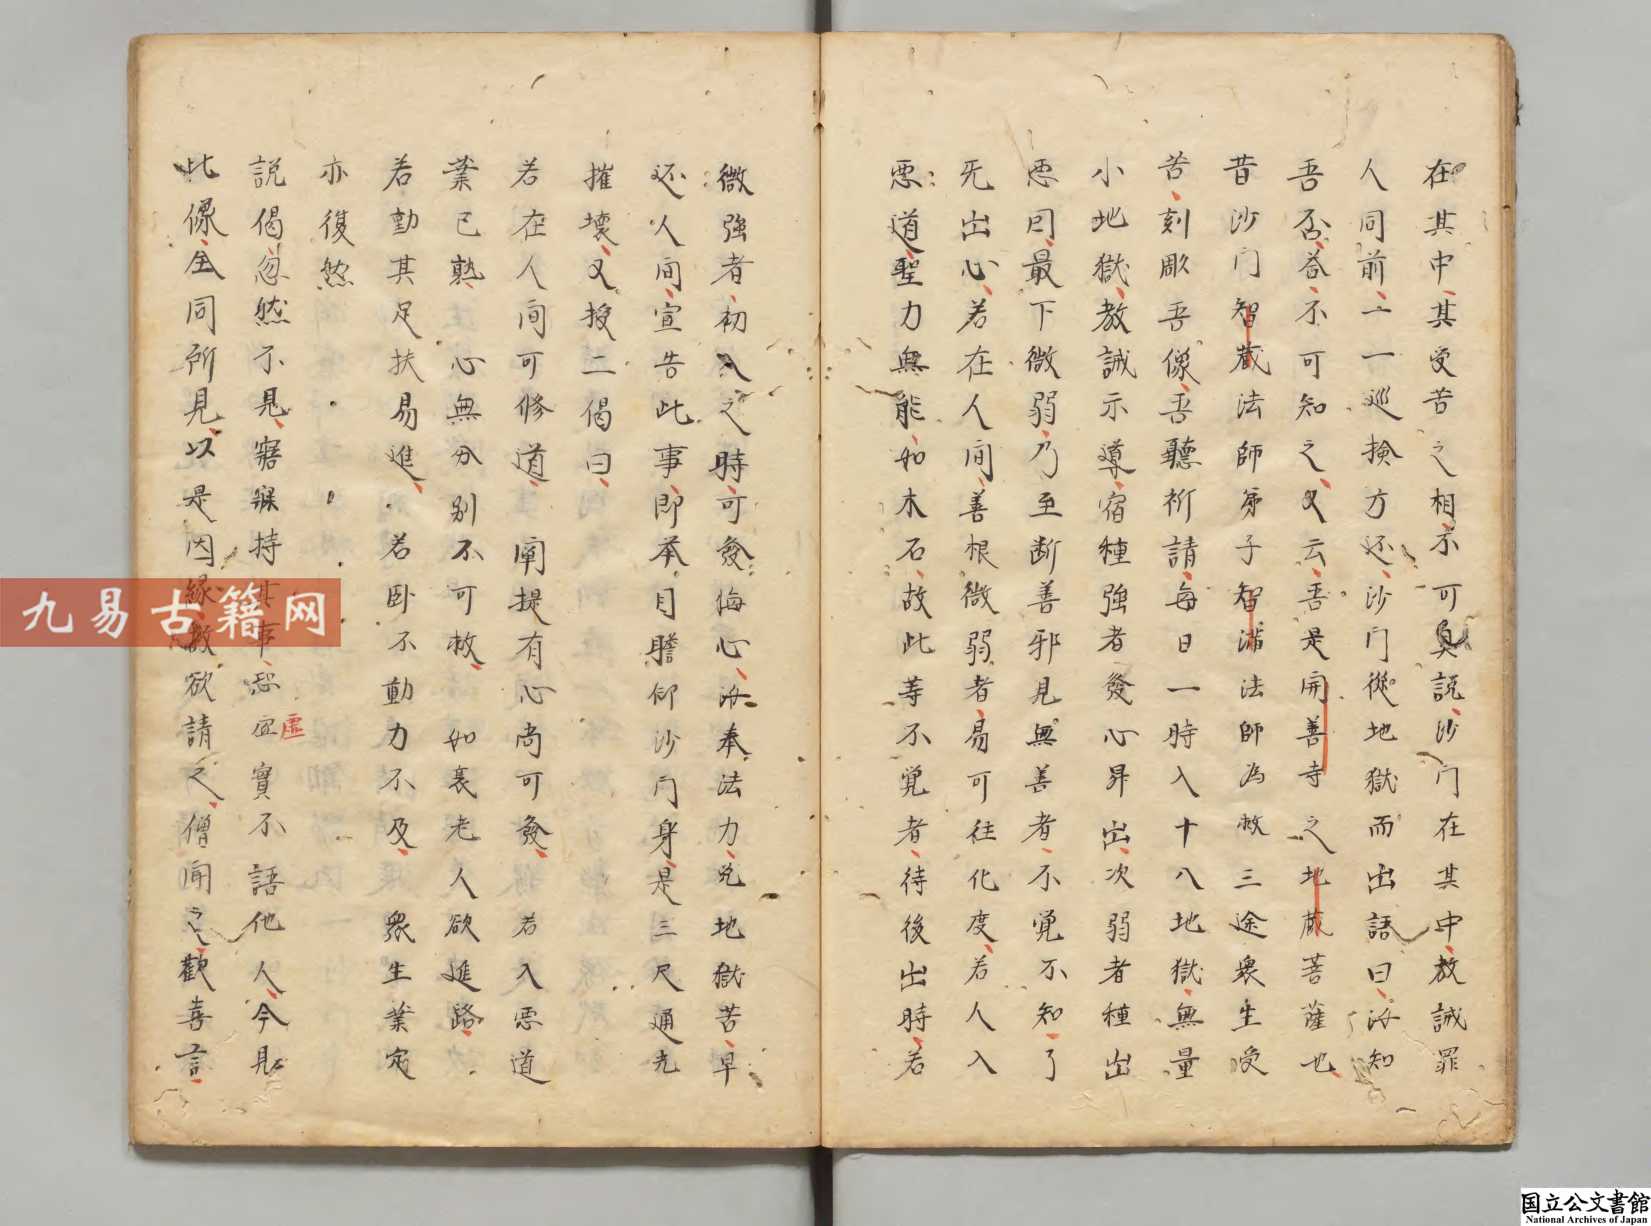 在其中其受苦之相不可具説沙门在其中教誡罪
人同前一一巡撿方还沙门從地獄而出語曰汝知
吾否荅不可知之又云吾是開善寺之地蔵菩薩也
昔沙门智蔵法師弟子智滿法師為救三途衆生受
苦刻彫吾像吾聽祈請每日一時入十八地獄無量
小地獄教誡示導宿種強者發心昇出次弱者種出
悪囙最下微弱乃至断善邪見無善者不覚不知了
无出心若在人间善根微弱者易可往化度若人入
悪道聖力無能如木石故此等不覚者待後出時若
微強者初入之時可發悔心汝奉法力免地獄苦早
还人间宣告此事即夲月瞻仰沙门身是三尺通光
摧壞又授二偈曰
若在人间可修道 闡提有心尚可發 若入悪道
業已熟 心無分別不可救 如衰老人欲進路
若勧其足扶易進 若卧不動力不及 衆生業定
亦復然
説偈忽然不見寤寐持其事恐虛實不語他人今見
虛
此像全同所見以是因縁救欲請之僧聞之歡喜言
九易古籍网
国立公文書館
National Archives of Japan